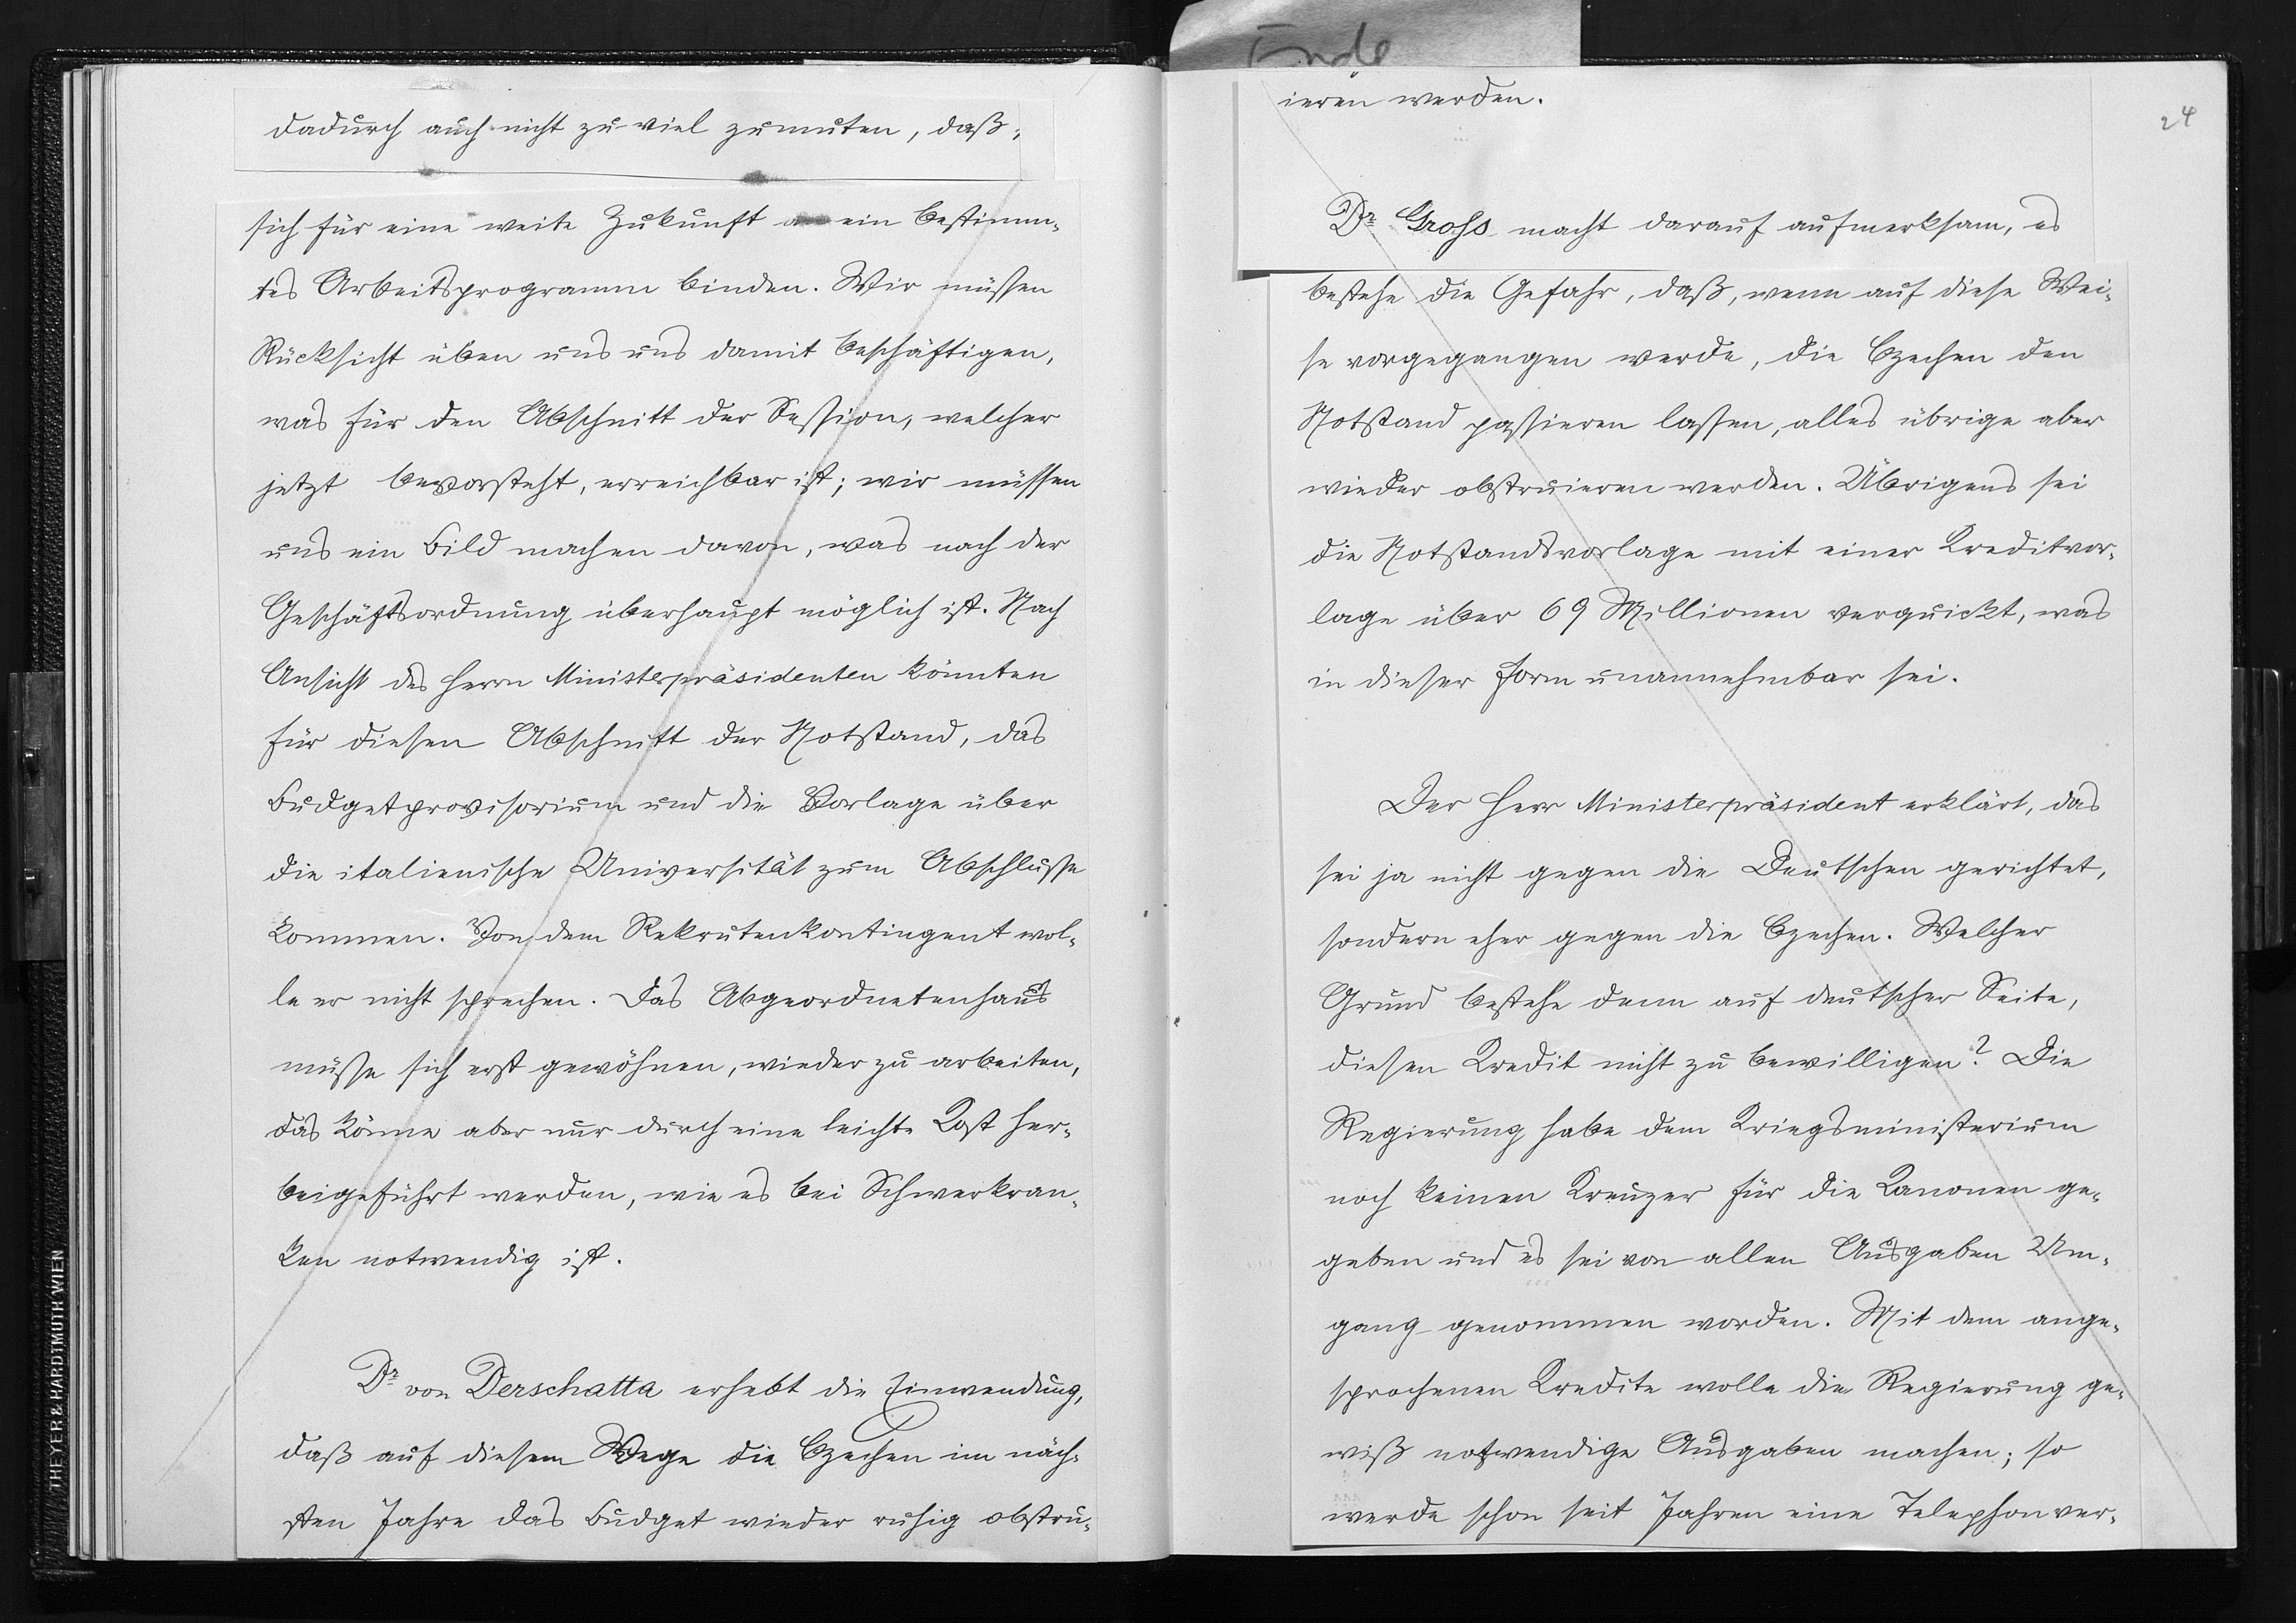 dadurch auch nicht zu viel zumuten, daß,
sich für eine weite Zukunft an ein bestimm-
tes Arbeitsprogramm binden. Wir müssen
Rücksicht üben uns uns damit beschäftigen,
was für den Abschnitt der Session, welcher
jetzt bevorsteht, erreichbar ist; wir müssen
uns ein Bild machen davon, was nach der
Geschäftsordnung überhaupt möglich ist. Nach
Ansicht des Herrn Ministerpräsidenten könnten
für diesen Abschnitt der Notstand, das
Budgetprovisorium und die Vorlage über
die italienische Universität zum Abschlusse
kommen. Von dem Rekrutenkontingent wol-
le er nicht sprechen. Das Abgeordnetenhaus
müsse sich erst gewöhnen, wieder zu arbeiten,
das könne aber nur durch eine leichte Kost her-
beigeführt werden, wie es bei Schwerkran-
ken notwendig ist.
Dr von Derschatta erhebt die Einwendung,
daß auf diesem Wege die Czechen im näch-
sten Jahre das Budget wieder ruhig obstru-
THEYER & HARDTMUTH WIEN
Ende
24
ieren werden.
Dr Gross macht darauf aufmerksam, es
bestehe die Gefahr, daß, wenn auf diese Wei-
se vorgegangen werde, die Czechen den
Notstand passieren lassen, alles übrige aber
wieder obstruieren werden. Übrigens sei
die Notstandsvorlage mit einer Kreditvor-
lage über 69 Millionen verquickt, was
in dieser Form unannehmbar sei.
Der Herr Ministerpräsident erklärt, das
sei ja nicht gegen die Deutschen gerichtet,
sondern eher gegen die Czechen. Welcher
Grund bestehe denn auf deutscher Seite,
diesen Kredit nicht zu bewilligen? Die
Regierung habe dem Kriegsministerium
noch keinen Kreuzer für die Kanonen ge-
geben und es sei von allen Ausgaben Um-
gang genommen worden. Mit dem ange-
sprochenen Kredite wolle die Regierung ge-
wiß notwendige Ausgaben machen; so
werde schon seit Jahren eine Telephonver-